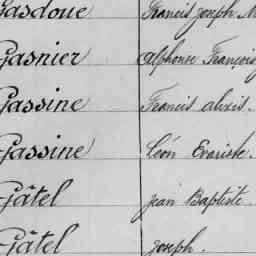 Gasdoue Francis Joseph M
Gasnier Alphonse François
Gassine Francis Alexis.
Gassine Léon Evariste.
Gâtel Jean Baptiste.
Gâtel Joseph.